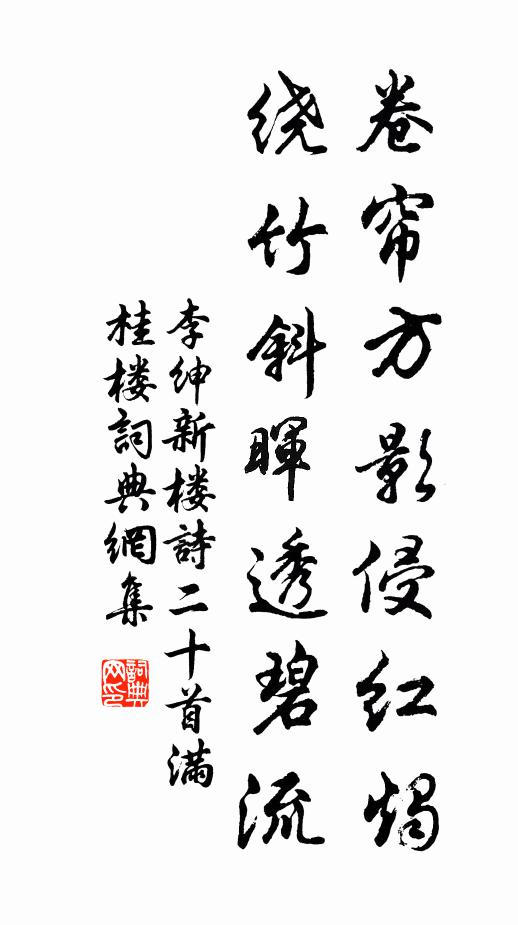 卷帘方影侵红烛
绕竹斜晖透碧流
李绅新楼詩二十首满
桂楼詞典網集
詞典网印